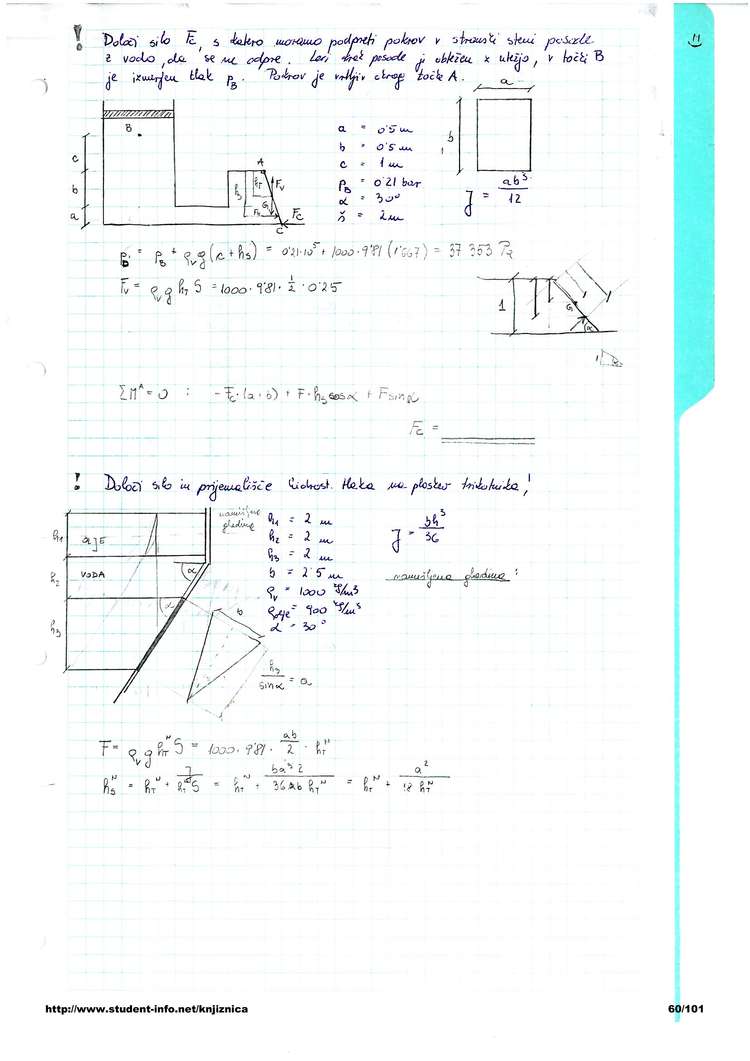 ! Določi silo Fc, s katero moramo podpreti pokrov v stranski steni posode
z vodo, da se ne odpre. Levi krak posode je obtežen z utežjo, v točki B
je izmerjen tlak pB. Pokrov je vrtljiv okrog točke A.
11
a
b
B
c
b
a
A
hT
hS
Fv
G
Fc
C
a = 0'5 m
b = 0'5 m
c = 1 m
pB = 0'21 bar
α = 30°
š = 2 m
J = ab³/12
= pB + ρv g (c + hS) = 0'21·10⁵ + 1000·9'81 (1'667) = 37 353 Pa
Fv = ρv g hT S = 1000·9'81·1/2·0'25
1
G
α
ΣMᴬ = 0 : - Fc·(a·b) + F·hS cosα + F sinα
Fc =
! Določi silo in prijemališče hidrost. tlaka na ploskev trikotnika!
h1
OLJE
h2
VODA
h3
α
α
namišljena
gladina
b
h1 = 2 m
h2 = 2 m
h3 = 2 m
b = 2'5 m
ρv = 1000 kg/m3
ρolje = 900 kg/m3
α = 30°
J = bh³/36
namišljena gladina :
h3/sinα = a
F = ρv g hTᴺ S = 1000·9'81·ab/2·hTᴺ
hSᴺ = hTᴺ + J/hTᴺS = hTᴺ + ba³2/36ab hTᴺ = hTᴺ + a²/18 hTᴺ
http://www.student-info.net/knjiznica
60/101